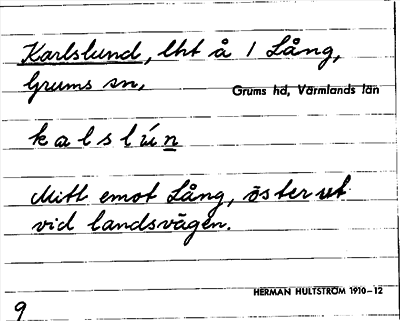 Karlslund, lht å 1 Lång,
Grums sn,
Grums hd, Värmlands län
kalslún
Mitt emot Lång, öster ut
vid landsvägen.
HERMAN HULTSTRÖM 1910-12
9